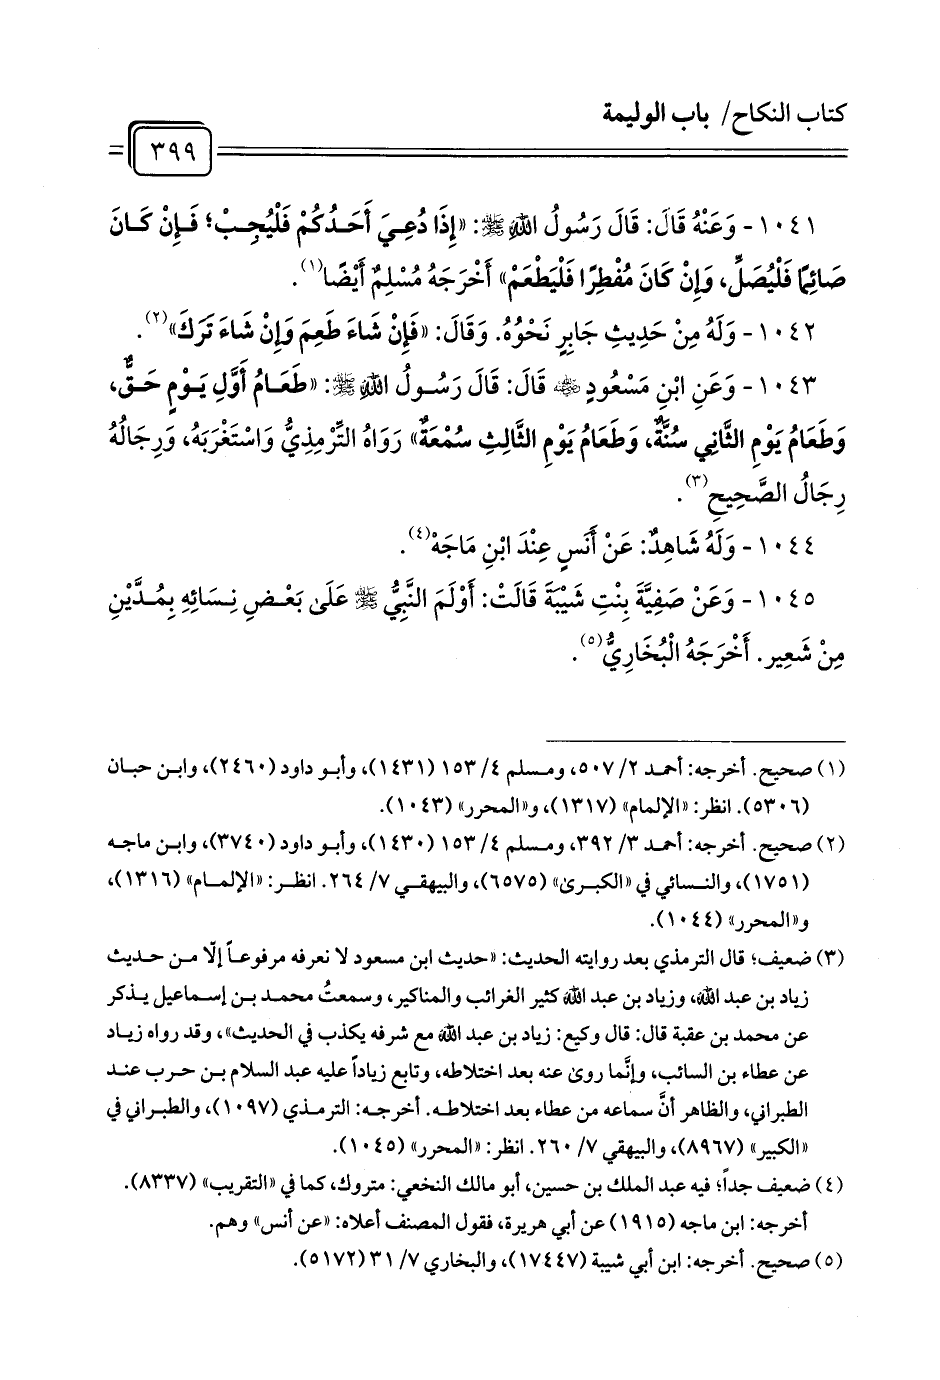 كتاب النكاح/ باب الوليمة
٣٩٩
١٠٤١ - وَعَنْهُ قَالَ: قَالَ رَسُولُ اللهِ ﷺ: «إِذَا دُعِيَ أَحَدُكُمْ فَلْيُجِبْ؛ فَإِنْ كَانَ
صَائِمًا فَلْيُصَلِّ، وَإِنْ كَانَ مُفْطِرًا فَلْيَطْعَمْ» أَخْرَجَهُ مُسْلِمٌ أَيْضًا(١).
١٠٤٢ - وَلَهُ مِنْ حَدِيثِ جَابِرٍ نَحْوُهُ. وَقَالَ: «فَإِنْ شَاءَ طَعِمَ وَإِنْ شَاءَ تَرَكَ»(٢).
١٠٤٣ - وَعَنِ ابْنِ مَسْعُودٍ رضي الله عنه قَالَ: قَالَ رَسُولُ اللهِ ﷺ: «طَعَامُ أَوَّلِ يَوْمٍ حَقٌّ،
وَطَعَامُ يَوْمِ الثَّانِي سُنَّةٌ، وَطَعَامُ يَوْمِ الثَّالِثِ سُمْعَةٌ» رَوَاهُ التِّرْمِذِيُّ وَاسْتَغْرَبَهُ، وَرِجَالُهُ
رِجَالُ الصَّحِيحِ(٣).
١٠٤٤ - وَلَهُ شَاهِدٌ: عَنْ أَنَسٍ عِنْدَ ابْنِ مَاجَهْ(٤).
١٠٤٥ - وَعَنْ صَفِيَّةَ بِنْتِ شَيْبَةَ قَالَتْ: أَوْلَمَ النَّبِيُّ ﷺ عَلَى بَعْضِ نِسَائِهِ بِمُدَّيْنِ
مِنْ شَعِير. أَخْرَجَهُ الْبُخَارِيُّ(٥).
(١) صحيح. أخرجه: أحمد ٢/ ٥٠٧، ومسلم ٤/ ١٥٣ (١٤٣١)، وأبو داود (٢٤٦٠)، وابن حبان
(٥٣٠٦). انظر: «الإلمام» (١٣١٧)، و«المحرر» (١٠٤٣).
(٢) صحيح. أخرجه: أحمد ٣/ ٣٩٢، ومسلم ٤/ ١٥٣ (١٤٣٠)، وأبو داود (٣٧٤٠)، وابن ماجه
(١٧٥١)، والنسائي في «الكبرى» (٦٥٧٥)، والبيهقي ٧/ ٢٦٤. انظر: «الإلمام» (١٣١٦)،
و«المحرر» (١٠٤٤).
(٣) ضعيف؛ قال الترمذي بعد روايته الحديث: «حديث ابن مسعود لا نعرفه مرفوعاً إلّا من حديث
زياد بن عبد الله، وزياد بن عبد الله كثير الغرائب والمناكير، وسمعتُ محمد بن إسماعيل يذكر
عن محمد بن عقبة قال: قال وكيع: زياد بن عبد الله مع شرفه يكذب في الحديث»، وقد رواه زياد
عن عطاء بن السائب، وإنَّما روى عنه بعد اختلاطه، وتابع زياداً عليه عبد السلام بن حرب عند
الطبراني، والظاهر أنَّ سماعه من عطاء بعد اختلاطه. أخرجه: الترمذي (١٠٩٧)، والطبراني في
«الكبير» (٨٩٦٧)، والبيهقي ٧/ ٢٦٠. انظر: «المحرر» (١٠٤٥).
(٤) ضعيف جداً؛ فيه عبد الملك بن حسين، أبو مالك النخعي: متروك، كما في «التقريب» (٨٣٣٧).
أخرجه: ابن ماجه (١٩١٥) عن أبي هريرة، فقول المصنف أعلاه: «عن أنس» وهم.
(٥) صحيح. أخرجه: ابن أبي شيبة (١٧٤٤٧)، والبخاري ٧/ ٣١ (٥١٧٢).